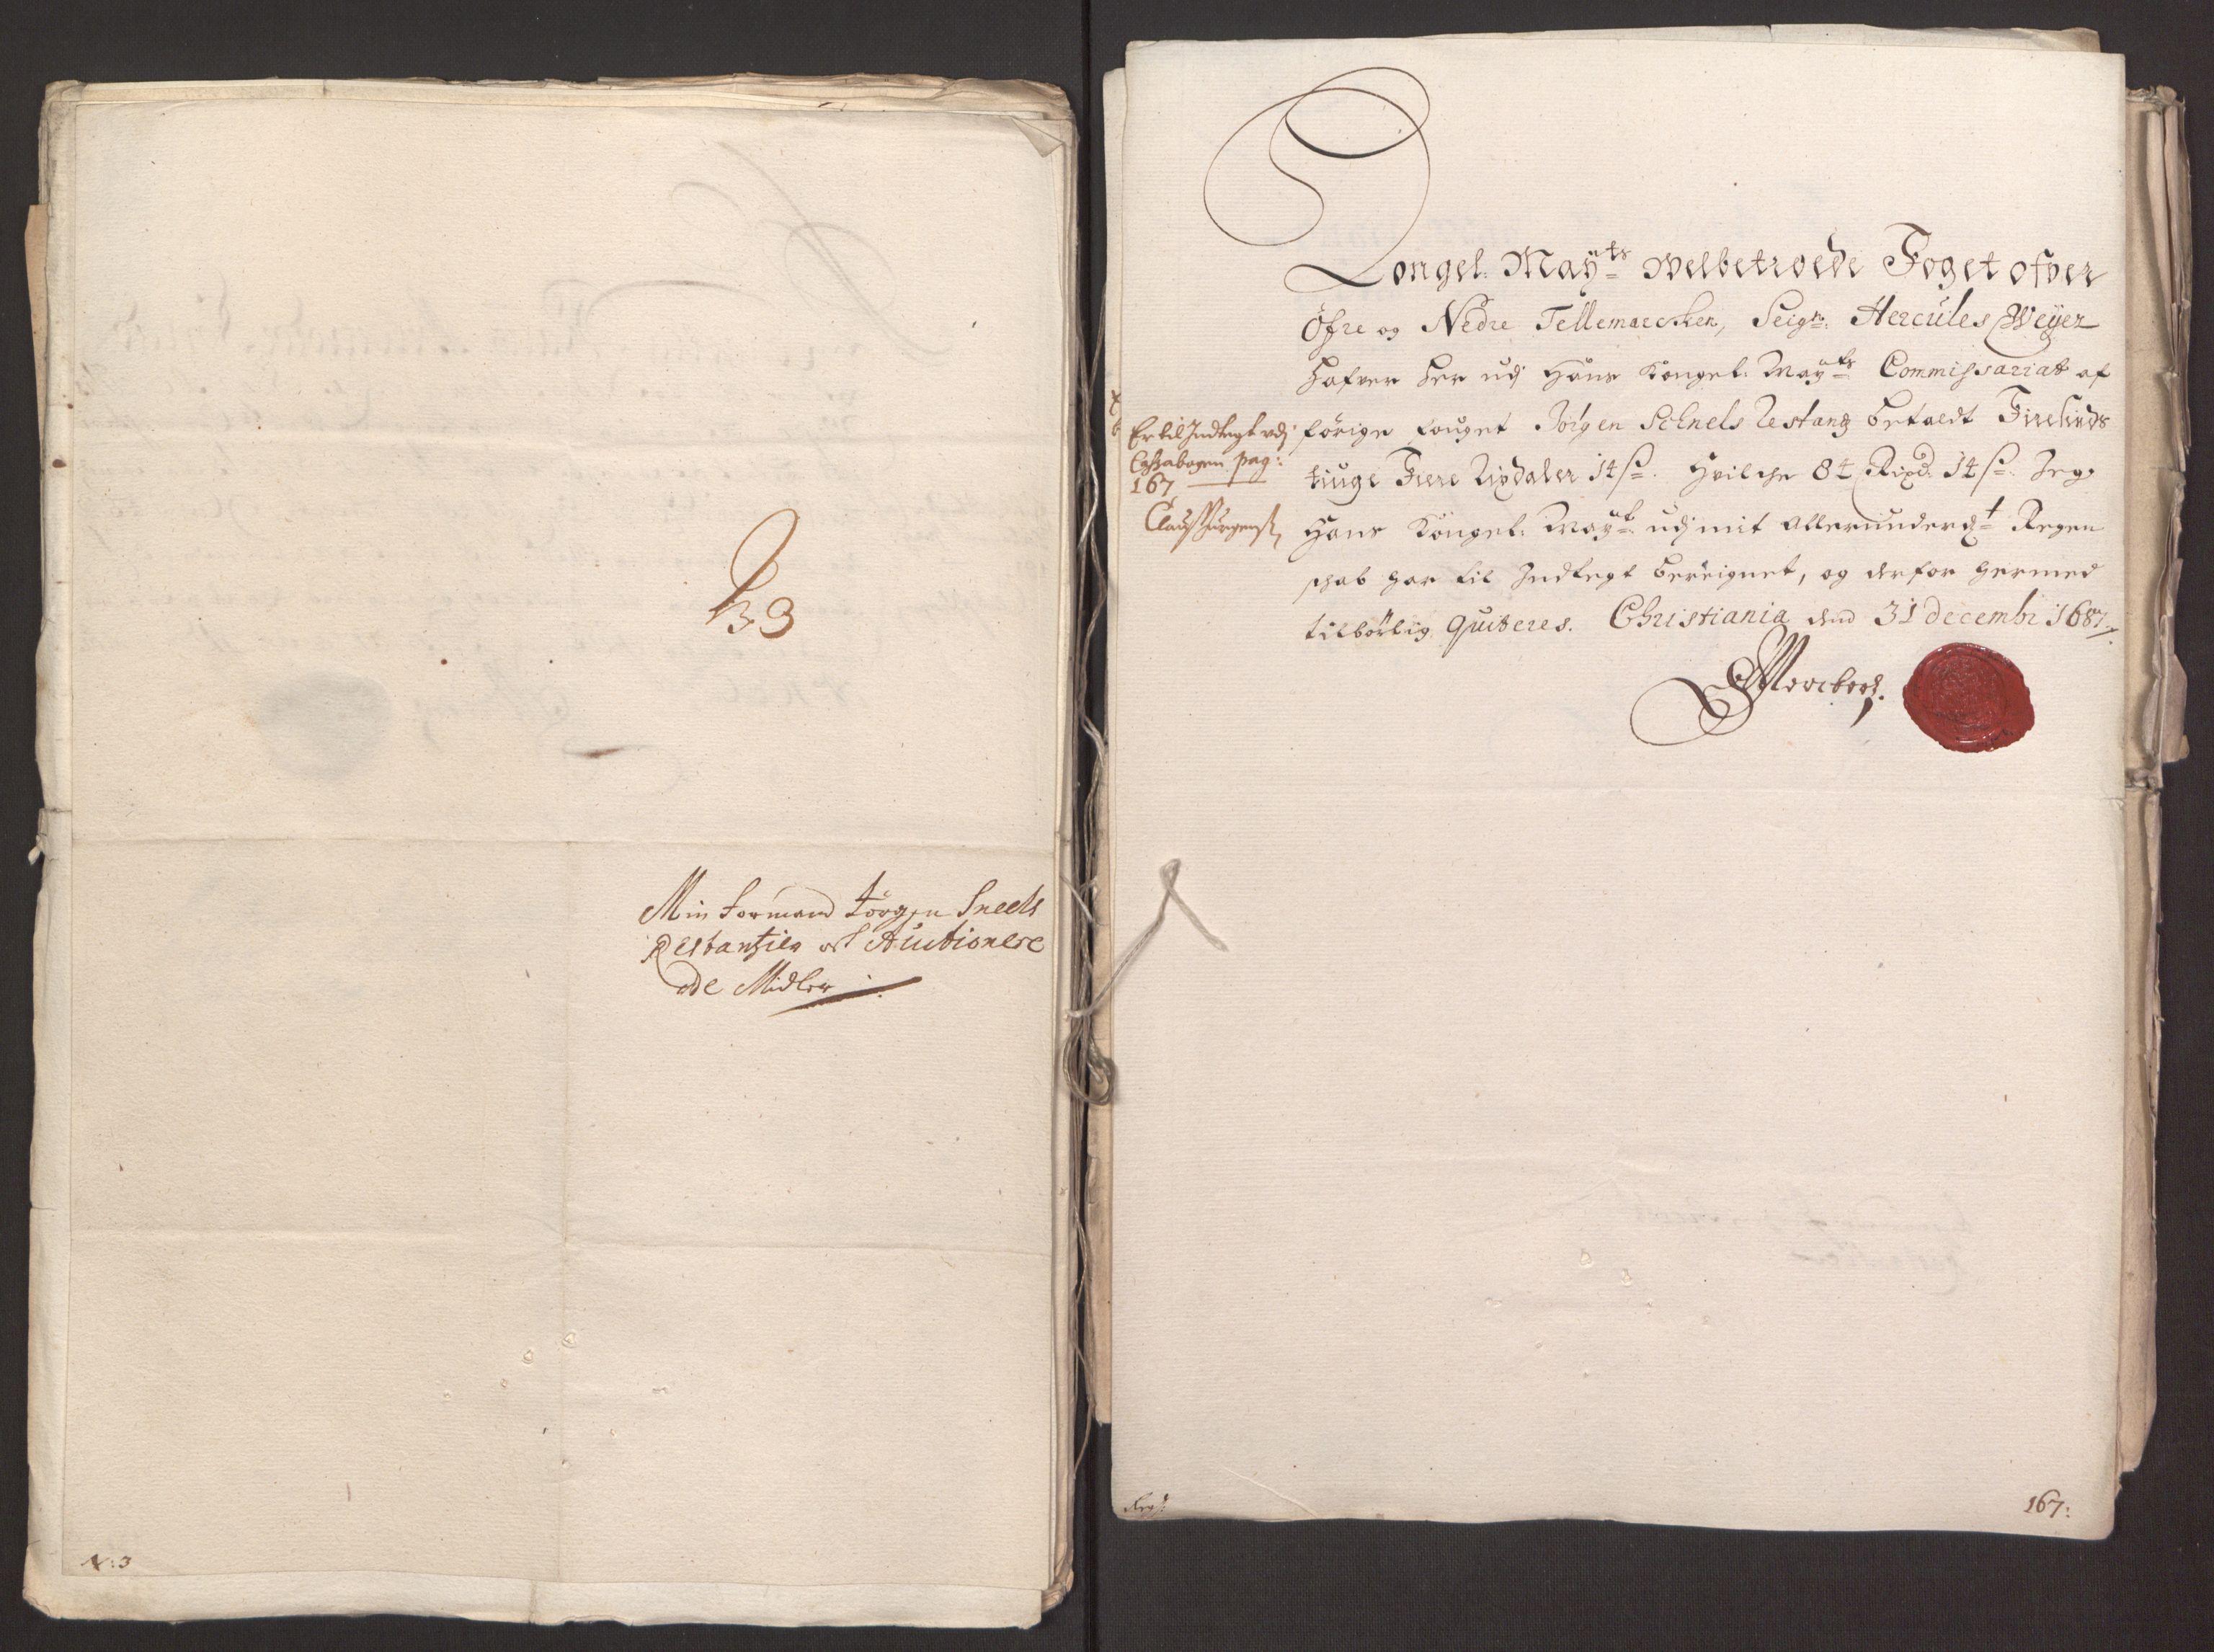 33
Min formand Jörgen Sneels
Restantzier och Auctionere
de Midler
N: 3
Kongel: Mayts Welbetroede Foget ofver
Öfre og Nedre Tellemarcken, Seigr: Hercules Weyer
hafver her udj Hans Kongel: Mayts Commissariat af
förige fouget Jörgen Schnels Restantz betaelt Firesinds
tiuge Fiere Rixdaler 14 s. Hvilche 84 Rixd: 14 s: Jeg
Hans Kongel: Mayt: udj mit allerunderdt Regen
schab har til Indtegt beregnet, og derfor hermed
tilbörlig quiteres. Christiania dend 31 decembr 1687.
Er til Indtegt udj
Cassabogen pag:
167
Claus Jurgens
Regd:
167: